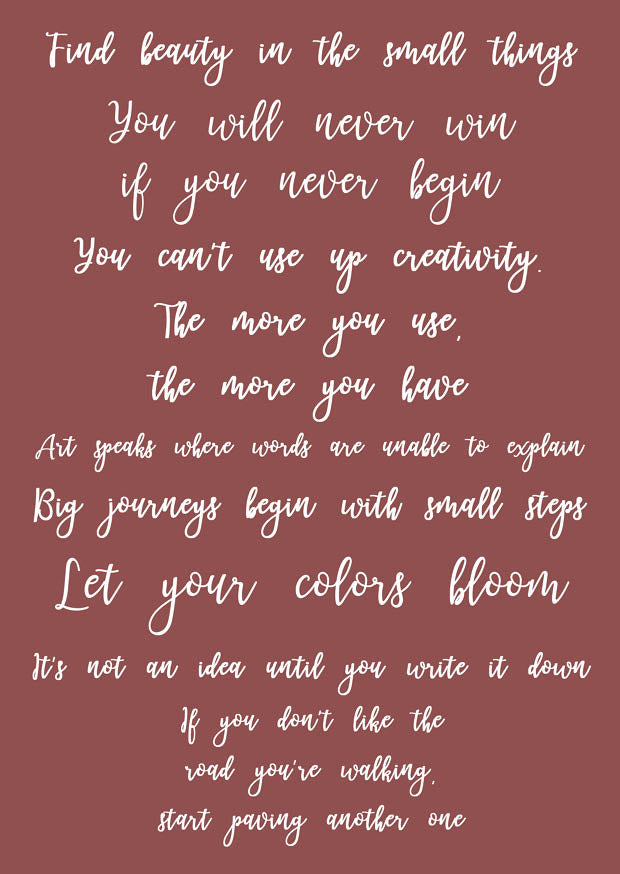 Find beauty in the small things
You will never win
if you never begin
You can't use up creativity.
The more you use,
the more you have
Art speaks where words are unable to explain
Big journeys begin with small steps
Let your colors bloom
It's not an idea until you write it down
If you don't like the
road you're walking,
start paving another one